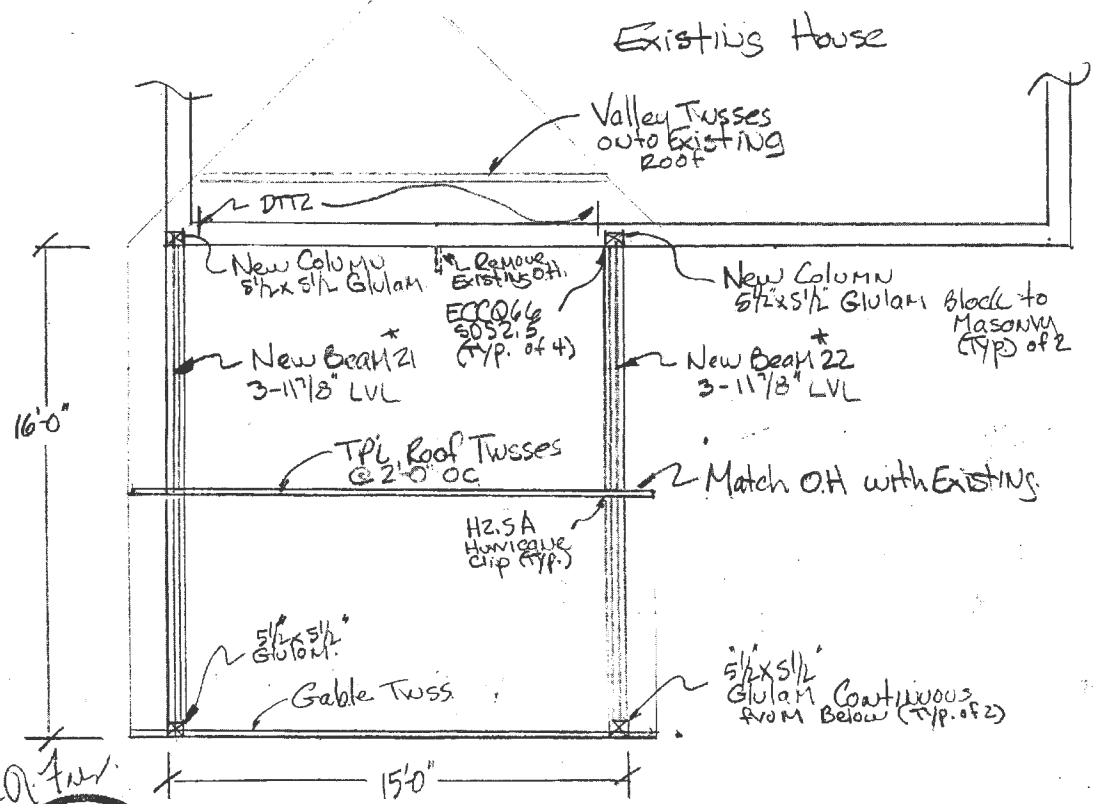 Existing House
Valley Trusses
onto Existing
Roof
DTT2
New Column
5 1/2 x 5 1/2 Glulam
Remove
Existing O.H.
ECCQ66
SDS2.5
(Typ. of 4)
New Column
5 1/2" x 5 1/2" Glulam Block to
Masonry
(Typ) of 2
New Beam *21
3-11 7/8" LVL
New Beam *22
3-11 7/8" LVL
16'-0"
TPI Roof Trusses
@ 2'-0" OC
Match O.H with Existing.
H2.5A
Hurricane
Clip (Typ.)
5 1/2 x 5 1/2"
Glulam.
Gable Truss
5 1/2" x 5 1/2"
Glulam Continuous
from Below (Typ. of 2)
15'-0"